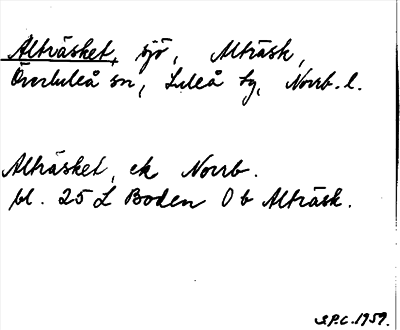 Altträsket, sjö, Altträsk,
Överluleå sn, Luleå tg, Norrb. l.
Altträsket, ek Norrb.
bl. 25 L Boden 0 b Altträsk.
S.P.C. 1959.